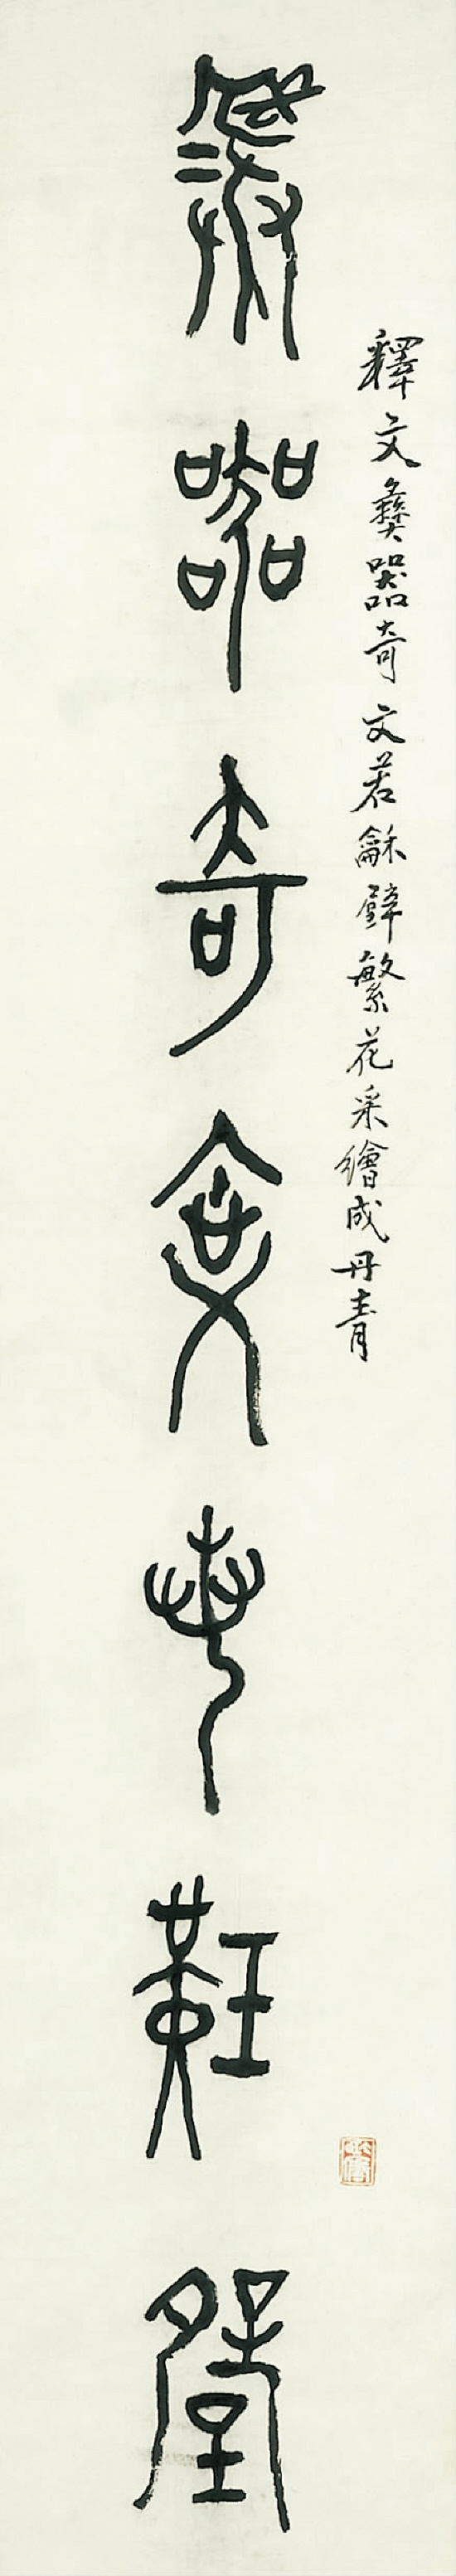 釋文彝器奇文若龢璧繁花采繪成丹青
彝器奇文若龢璧